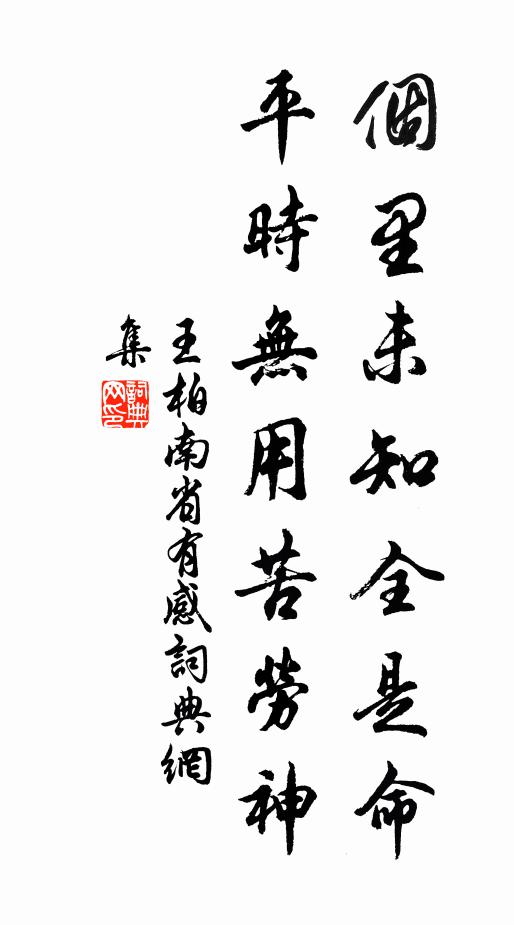 個里未知全是命
平時無用苦勞神
王柏南省有感詞典網
集
詞典網印